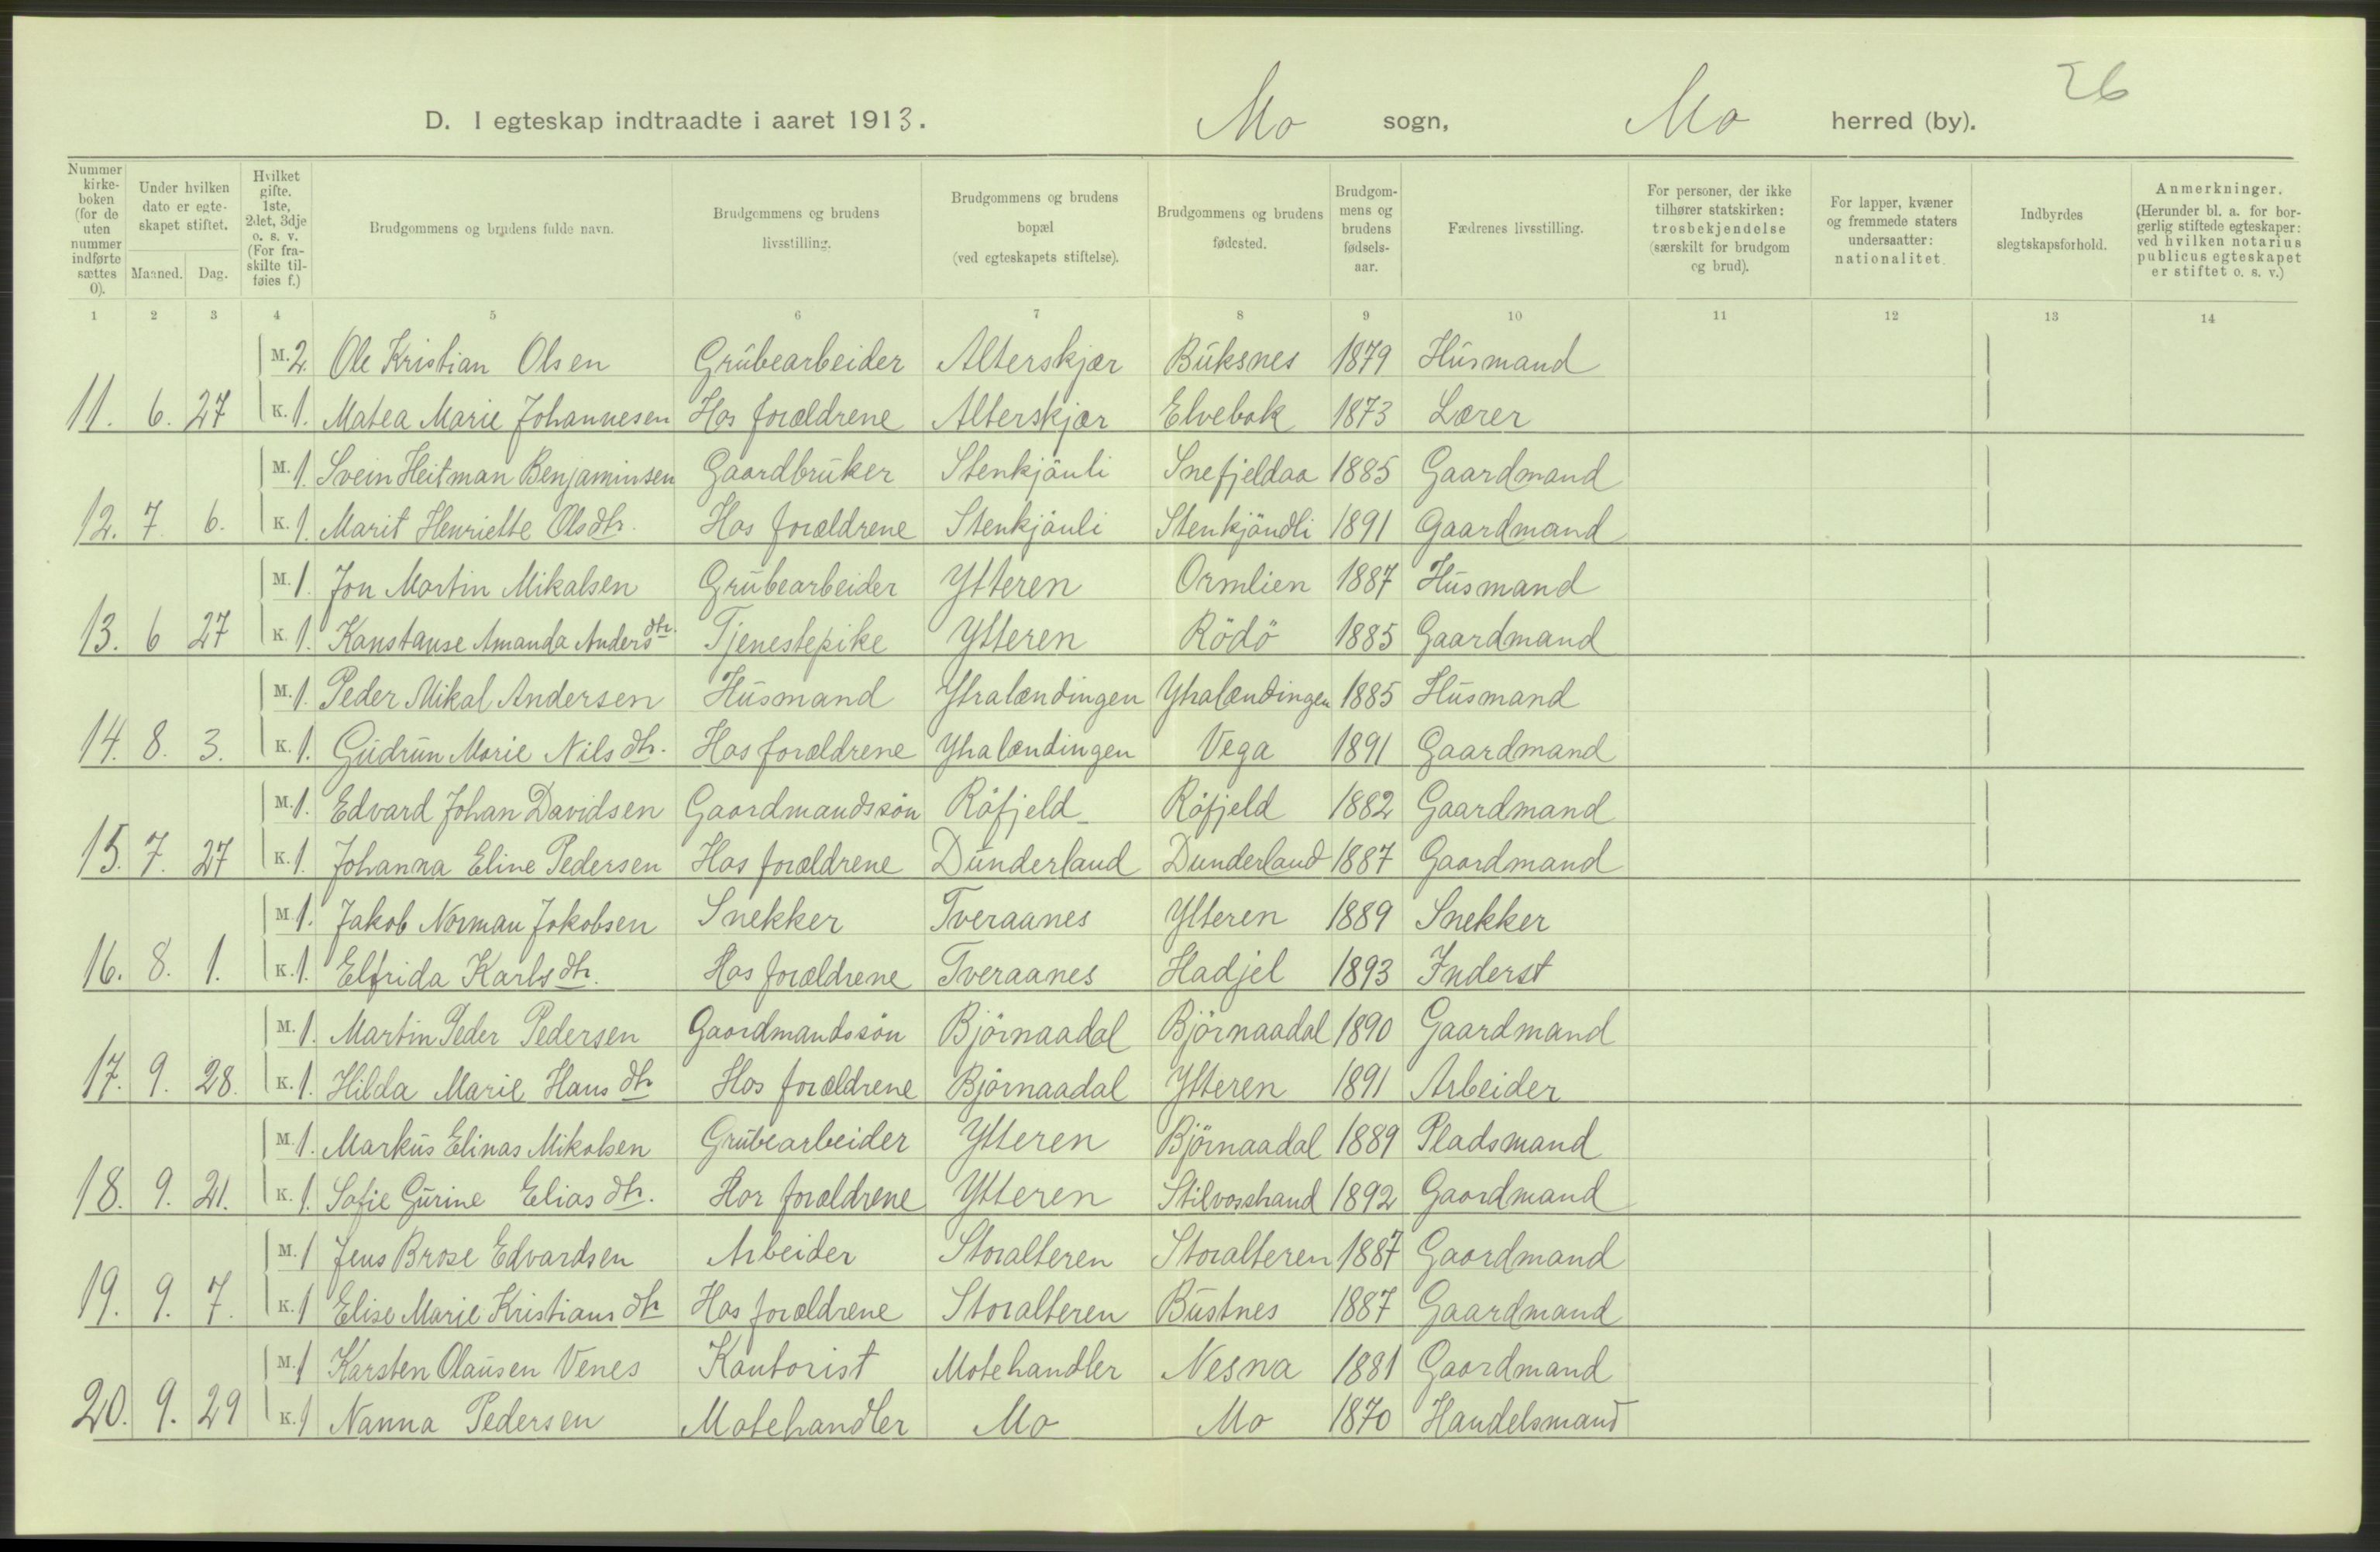 26
D. I egteskap indtraadte i aaret 1913. Mo sogn, Mo herred (by).
Nummer kirkeboken (for de uten nummer indførte sættes 0). Under hvilken dato er egteskapet stiftet. Maaned. Dag. Hvilket gifte. 1ste, 2det, 3dje o. s. v. (For fraskilte tilføies f.) Brudgommens og brudens fulde navn. Brudgommens og brudens livsstilling. Brudgommens og brudens bopæl (ved egteskapets stiftelse). Brudgommens og brudens fødested. Brudgommens og brudens fødselsaar. Fædrenes livsstilling. For personer, der ikke tilhører statskirken: trosbekjendelse (særskilt for brudgom og brud). For lapper, kvæner og fremmede staters undersaatter: nationalitet. Indbyrdes slegtskapsforhold. Anmerkninger. (Herunder bl. a. for borgerlig stiftede egteskaper: ved hvilken notarius publicus egteskapet er stiftet o. s. v.)
1 2 3 4 5 6 7 8 9 10 11 12 13 14
M. 2. Ole Kristian Olsen Grubearbeider Alterskjær Buksnes 1879 Husmand
11. 6. 27 K. 1. Matea Marie Johannesen Hos forældrene Alterskjær Elvebak 1873 Lærer
M. 1. Svein Heitman Benjaminsen Gaardbruker Stenkjönli Snefjeldaa 1885 Gaardmand
12. 7. 6. K. 1. Marit Henriette Olsdtr. Hos forældrene Stenkjönli Stenkjöndli 1891 Gaardmand
M. 1. Jon Martin Mikalsen Grubearbeider Ytteren Ormlien 1887 Husmand
13. 6 27 K. 1. Konstanse Amanda Andersdtr. Tjenestepike Ytteren Rödö 1885 Gaardmand
M. 1. Peder Mikal Andersen Husmand Ytralændingen Ytralændingen 1885 Husmand
14. 8. 3. K. 1. Gudrun Marie Nilsdtr. Hos forældrene Ytralændingen Vega 1891 Gaardmand
M. 1. Edvard Johan Davidsen Gaardmandssön Röfjeld Röfjeld 1882 Gaardmand
15. 7. 27 K. 1. Johanna Eline Pedersen Hos forældrene Dunderland Dunderland 1887 Gaardmand
M. 1. Jakob Norman Jakobsen Snekker Tveraanes Ytteren 1889 Snekker
16. 8. 1. K. 1. Elfrida Karlsdtr. Hos forældrene Tveraanes Hadsel 1893 Inderst
M. 1. Martin Peder Pedersen Gaardmandssön Björnaadal Björnaadal 1890 Gaardmand
17. 9. 28. K. 1. Hilda Marie Hansdtr Hos forældrene Björnaadal Ytteren 1891 Arbeider
M. 1. Markus Elinas Mikalsen Grubearbeider Ytteren Björnaadal 1889 Pladsmand
18. 9. 21. K. 1. Sofie Gurine Eliasdtr. Hos forældrene Ytteren Stilvosstrand 1892 Gaardmand
M. 1 Jens Brose Edvardsen Arbeider Storalteren Storalteren 1887 Gaardmand
19. 9. 7. K. 1 Elise Marie Kristiansdtr Hos forældrene Storalteren Bustnes 1887 Gaardmand
M. 1 Karsten Olausen Venes Kontorist Motehandler Nesna 1881 Gaardmand
20. 9. 29 K. 1 Nanna Pedersen Motehandler Mo Mo 1870 Handelsmand